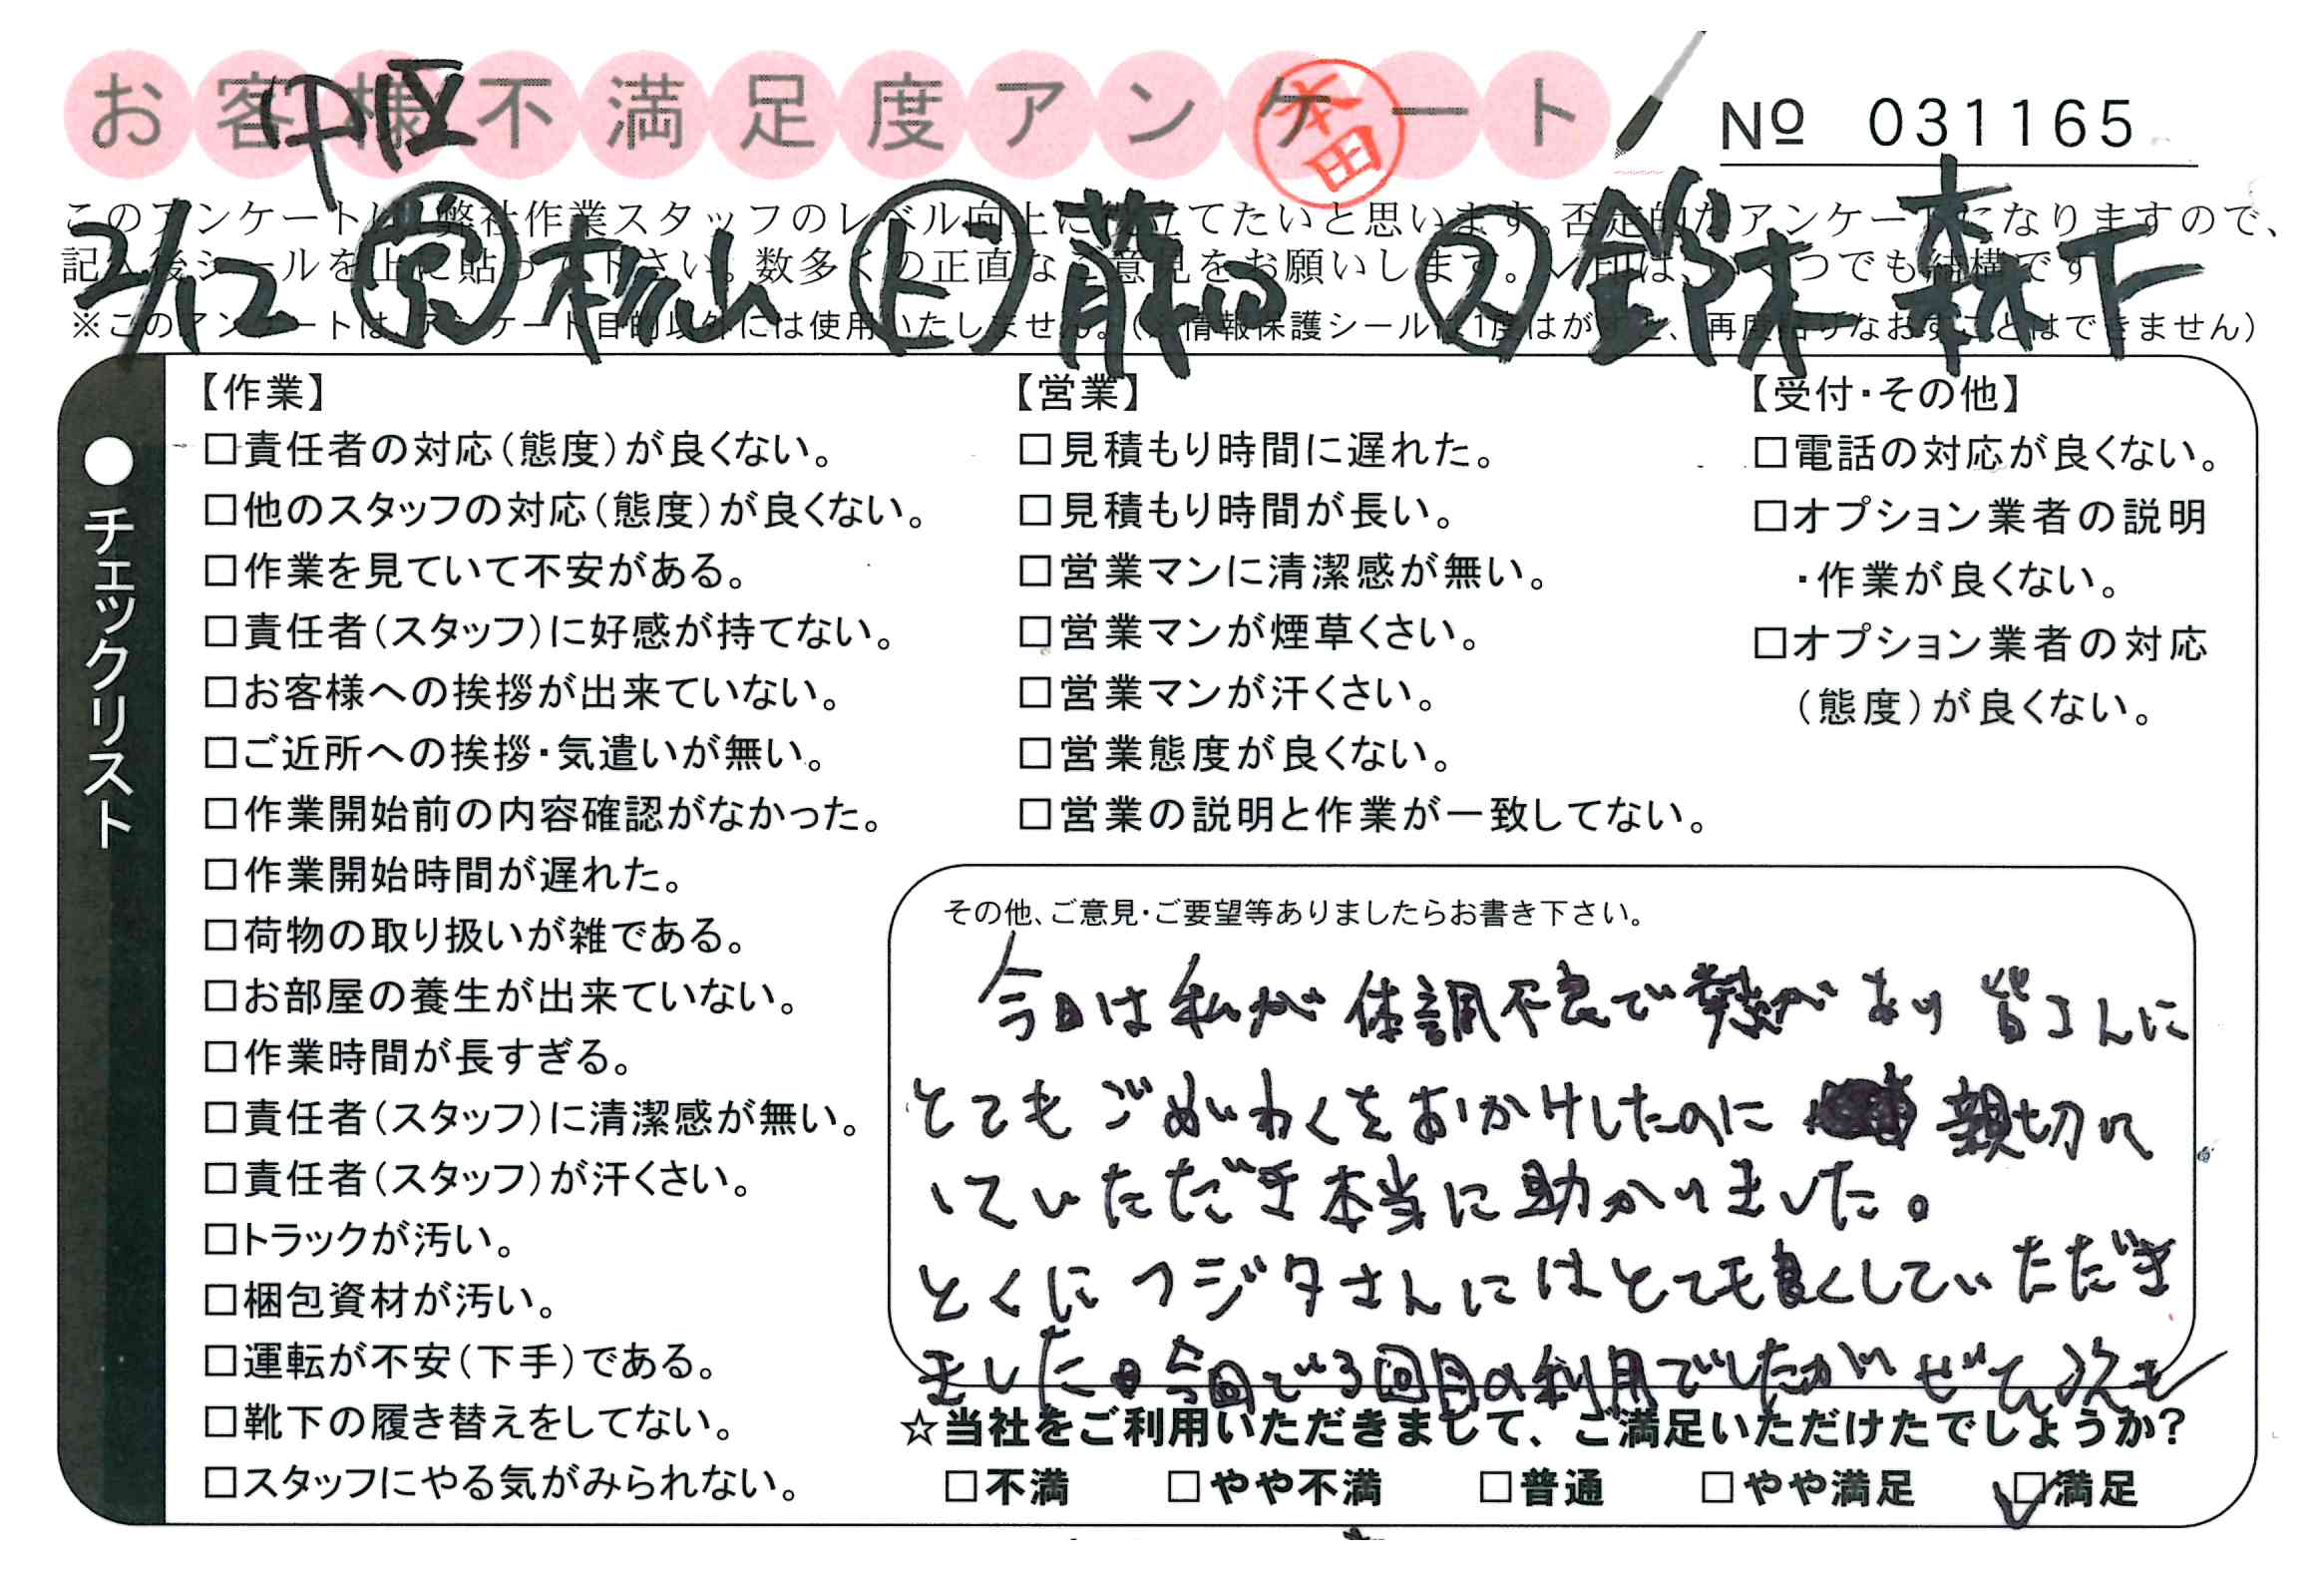 お客様不満足度アンケート
中区
本田
№ 031165
このアンケートは、弊社作業スタッフのレベル向上に役立てたいと思います。否定的なアンケートになりますので、
記入後シールを上に貼って下さい。数多くの正直なご意見をお願いします。レ印は、いくつでも結構です。
2/12 営 杉山 ド 藤田 ス 鈴木 森下
※このアンケートは、アンケート目的以外には使用いたしません。(※情報保護シールは1度はがすと、再度貼りなおすことはできません)
●チェックリスト
【作業】
□責任者の対応(態度)が良くない。
□他のスタッフの対応(態度)が良くない。
□作業を見ていて不安がある。
□責任者(スタッフ)に好感が持てない。
□お客様への挨拶が出来ていない。
□ご近所への挨拶・気遣いが無い。
□作業開始前の内容確認がなかった。
□作業開始時間が遅れた。
□荷物の取り扱いが雑である。
□お部屋の養生が出来ていない。
□作業時間が長すぎる。
□責任者(スタッフ)に清潔感が無い。
□責任者(スタッフ)が汗くさい。
□トラックが汚い。
□梱包資材が汚い。
□運転が不安(下手)である。
□靴下の履き替えをしてない。
□スタッフにやる気がみられない。
【営業】
□見積もり時間に遅れた。
□見積もり時間が長い。
□営業マンに清潔感が無い。
□営業マンが煙草くさい。
□営業マンが汗くさい。
□営業態度が良くない。
□営業の説明と作業が一致してない。
【受付・その他】
□電話の対応が良くない。
□オプション業者の説明
・作業が良くない。
□オプション業者の対応
(態度)が良くない。
その他、ご意見・ご要望等ありましたらお書き下さい。
今日は私が体調不良で熱があり皆さんに
とてもごめいわくをおかけしたのに 親切に
していただき本当に助かりました。
とくにフジタさんにはとても良くしていただき
ました 今回で3回目の利用でしたがぜひ次も
☆当社をご利用いただきまして、ご満足いただけたでしょうか?
□不満 □やや不満 □普通 □やや満足 ☑満足